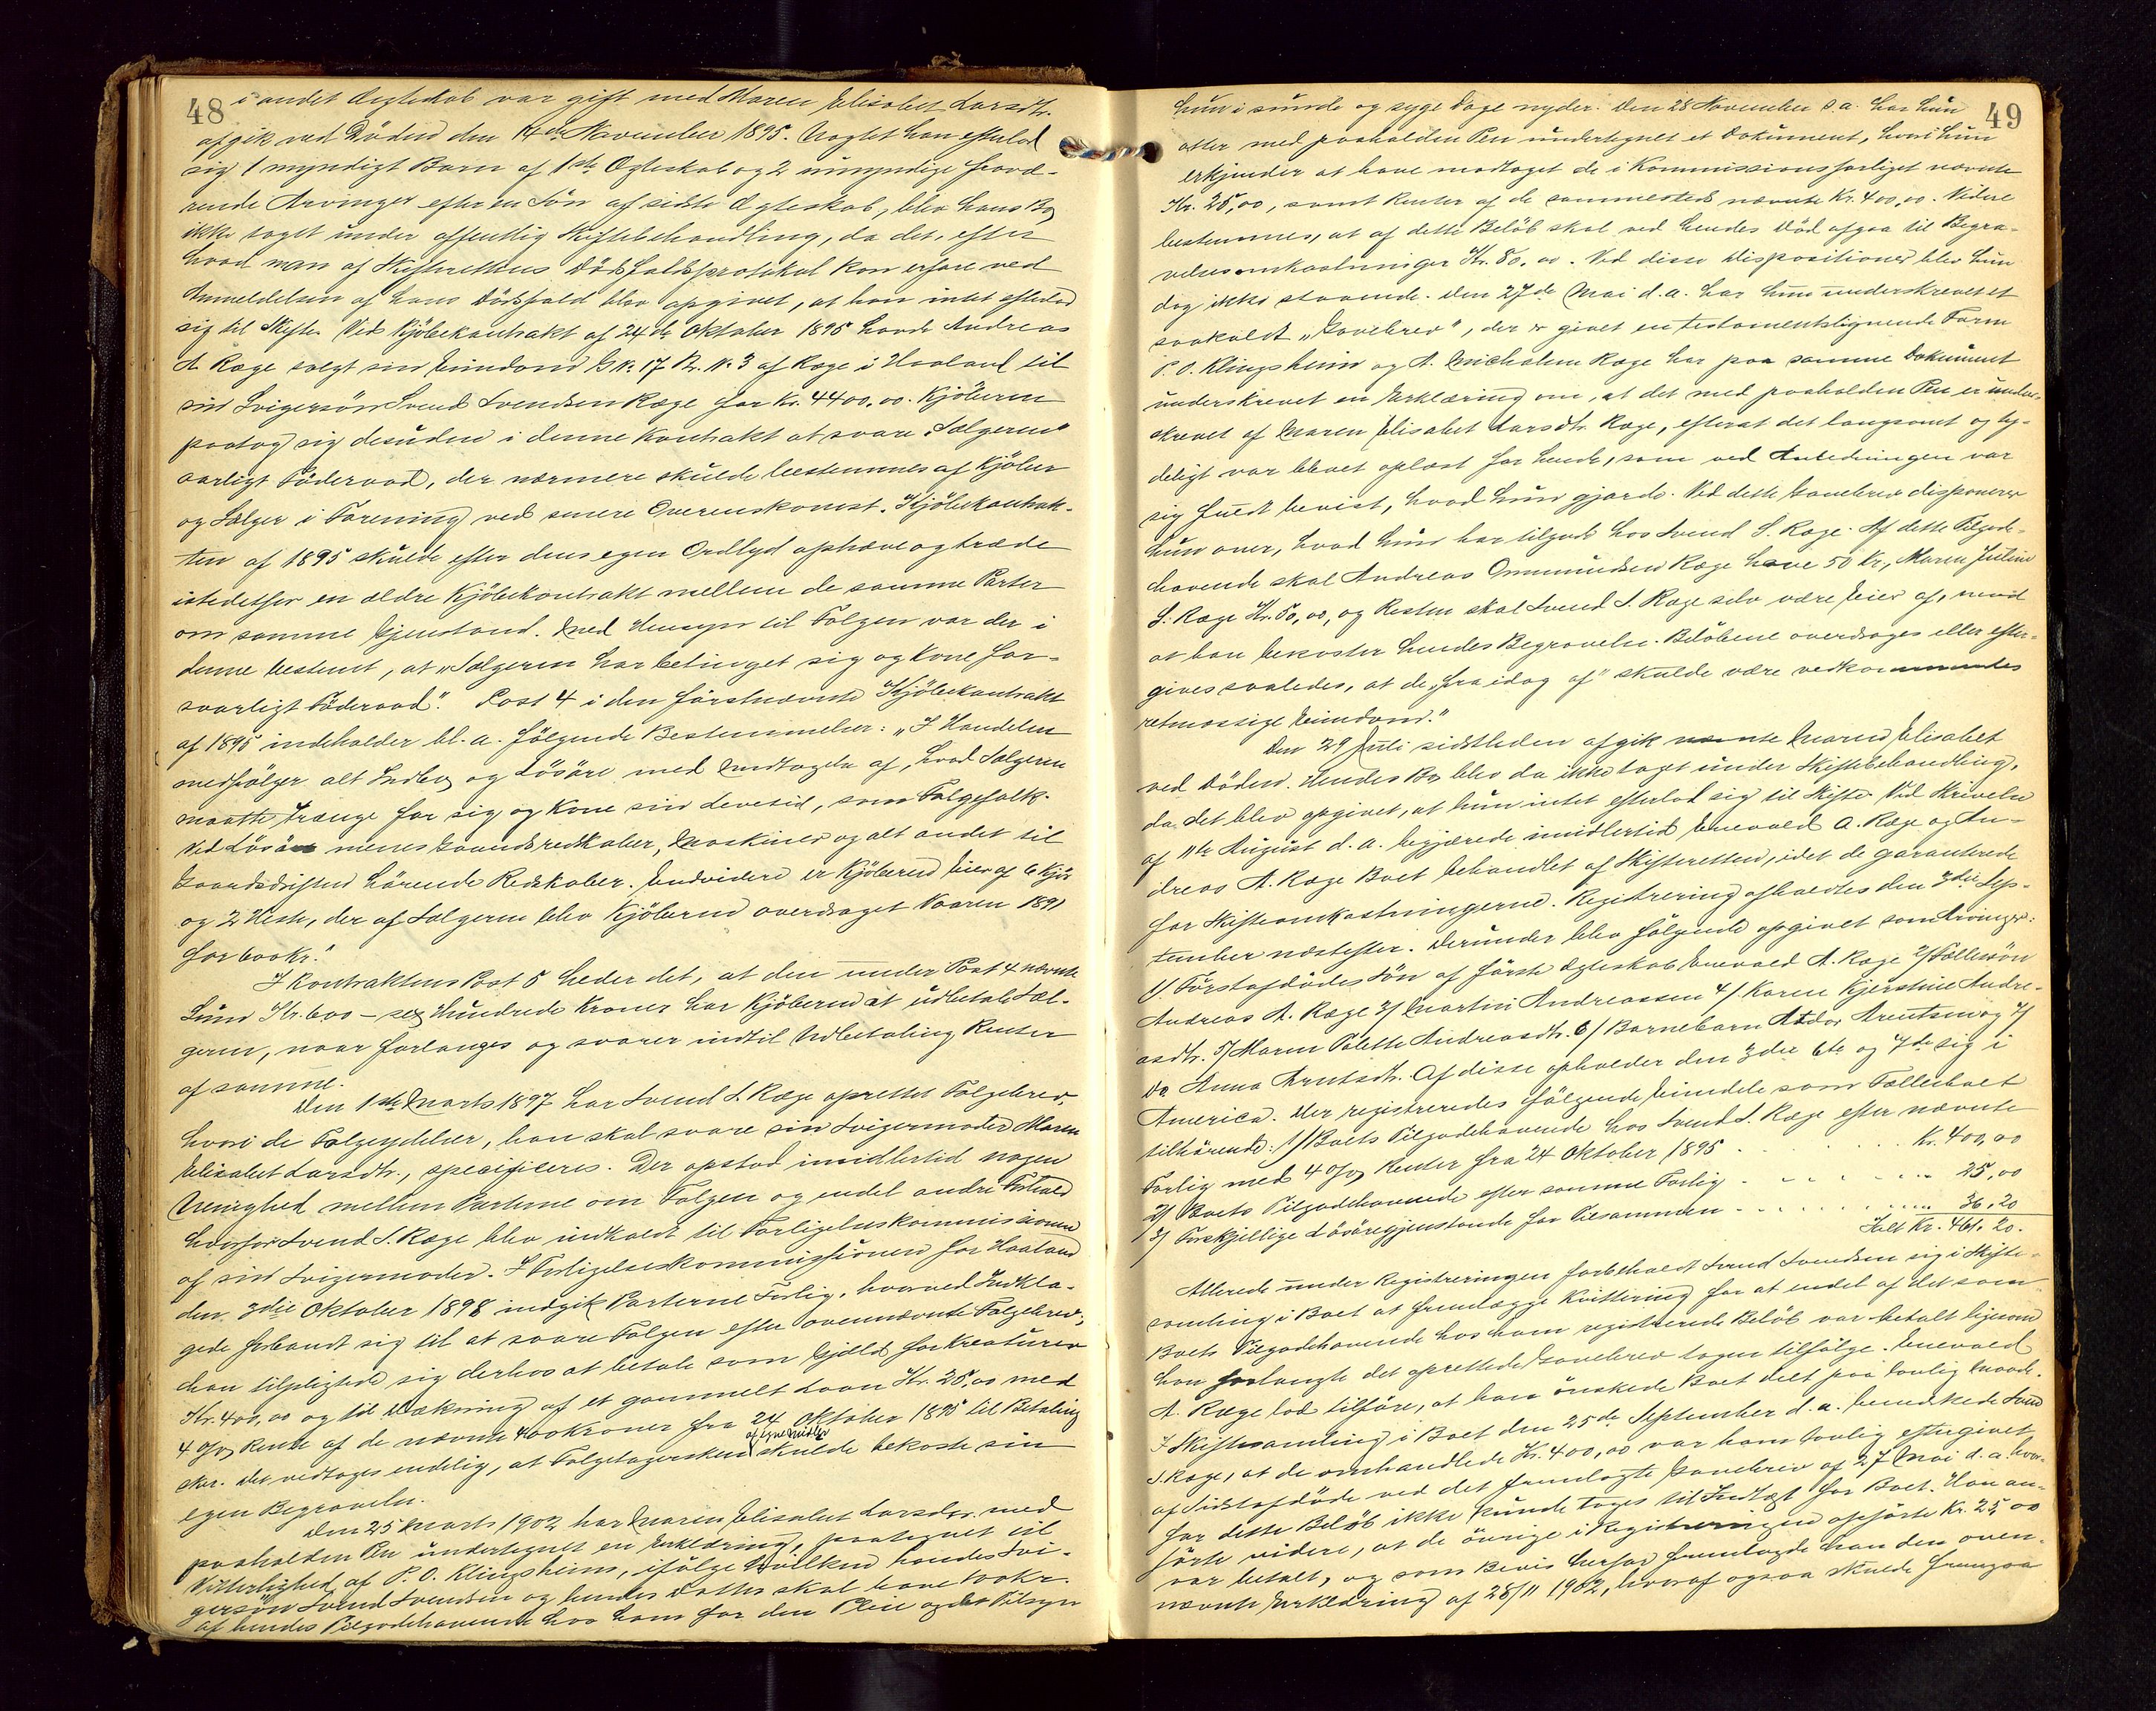 48
i andet Ægteskab var gift med Maren Elisabet Larsdtr.
afgik ved Döden den 14de November 1895. Uagtet han efterlod
sig 1 myndigt Barn af 1ste Ægteskab og 2 umyndige fravæ-
rende Arvinger efter en Sön af sidste Ægteskab, blev hans Bo
ikke taget under offentlig Skiftebehandling, da det, efter
hvad man af Skifterettens Dödsfaldsprotokol kan erfare ved
Anmeldelsen af hans Dödsfald blev opgivet, at han intet efterlod
sig til Skifte. Ved Kjöbekontrakt af 24de Oktober 1895 havde Andreas
A Ræge solgt sin Eiendom G. No. 17 B. No. 3 af Ræge i Haaland til
sin Svigersön Svend Svendsen Ræge for Kr. 4400.00. Kjöberen
paatog sig desuden i denne Kontrakt at svare "Sælgeren"
aarligt Föderaad, der nærmere skulde bestemmes af Kjöber
og Sælger i Forening ved senere Overenskomst. Kjöbekontrak-
ten af 1895 skulde efter dens egen Ordlyd ophæve og træde
istedetfor en ældre Kjöbekontrakt mellem de samme Parter
om samme Gjenstand. Med Hensyn til Folgen var der i
denne bestemt, at "Sælgeren har betinget sig og Kone for-
svarligt Föderaad". Post 4 i den förstnævnte Kjöbekontrakt
af 1895 indeholder bl. a. fölgende Bestemmelser: "I Handelen
medfölger alt Indbo og Lösöre med Undtagelse af, hvad Sælgeren
maatte trænge for sig og Kone sin Levetid, som Folgefolk.
Ved Lösöre menes Gaardsredskaber, Maskiner og alt andet til
Gaardsdriften hörende Redskaber. Endvidere er Kjöberen Eier af 6 Kjör
og 2 Heste, der af Sælgeren blev Kjöberen overdraget Vaaren 1891
for 600 kr."
I Kontraktens Post 5 heder det, at den under Post 4 nævnte
Sum Kr. 600 – sex Hundrede Kroner har Kjöberen at udbetale Sæl-
geren, naar forlanges og svarer indtil Udbetaling Renter
af samme.
Den 1ste Marts 1897 har Svend S. Ræge oprettet Folgebrev,
hvori de Folgeydelser, han skal svare sin Svigermoder Maren
Elisabet Larsdtr., specificeres. Der opstod imidlertid nogen
Uenighed mellem Parterne om Folgen og endel andre Forhold
hvorfor Svend S. Ræge blev indkaldt til Forligelseskommissionen
af sin Svigermoder. I Forligelseskommissionen for Haaland
den 3die Oktober 1898 indgik Parterne Forlig, hvorved Indkla-
gede forbandt sig til at svare Folgen efter ovennævnte Folgebrev;
han tilpligtede sig derhos at betale som Gjæld for Kreaturer
Kr. 400,00 og til Dækning af et gammelt Laan Kr. 25,00 med
4 o/o Rente af de nævnte 400 Kroner fra 24 Oktober 1895 til Betaling
sker. Det vedtages endelig, at Folgetagersken af egne Midler skulde bekoste sin
egen Begravelse.
Den 25 Marts 1902 har Maren Elisabet Larsdtr. med
paaholden Pen undertegnet en Erklæring, paategnet til
Vitterlighed af P. O. Klingsheim, ifölge hvilken hendes Svi-
gersön Svend Svendsen og hendes Datter skal have 100 kr.
af hendes Tilgodehavende hos ham for den Pleie og det Tilsyn
49
hun i sunde og syge Dage nyder. Den 28 November s. a. har hun
atter med paaholden Pen undertegnet et Dokument, hvori hun
erkjender at have modtaget de i Kommissionsforliget nævnte
Kr. 25,00, samt Renter af de sammesteds nævnte Kr. 400,00. Videre
bestemmes, at af dette Belöb skal ved hendes Död afgaa til Begra-
velsesomkostninger Kr. 80.00. Ved disse Dispositioner blev hun
dog ikke staaende. Den 27de Mai d. a. har hun underskrevet et
saakaldt "Gavebrev", der er givet en testamentslignende Form
P. O. Klingsheim og A. Michalsen Ræge har paa samme Dokument
underskrevet en Erklæring om, at det med paaholden Pen er under-
skrevet af Maren Elisabet Larsdtr. Ræge, efterat det langsomt og ty-
deligt var blevet oplæst for hende, som ved Anledningen var
sig fuldt bevist, hvad hun gjorde. Ved dette Gavebrev disponerer
hun over, hvad hun har tilgode hos Svend S. Ræge. Af dette Tilgode-
havende skal Andreas Ommundsen Ræge have 50 Kr., Maren Juline
S. Ræge Kr. 50,00, og Resten skal Svend S. Ræge selv være Eier af, mod
at han bekoster hendes Begravelse. Belöbene overdrages eller efter-
gives saaledes, at de "fra idag af" skulde være vedkommendes
retmæssige Eiendom."
Den 29 Juli sidstleden afgik nævnte Maren Elisabet
ved Döden. Hendes Bo blev da ikke taget under Skiftebehandling,
da det blev opgivet, at hun intet efterlod sig til Skifte. Ved Skrivelse
af 11te August d. a. begjærede imidlertid Enevald A. Ræge og An-
dreas A. Ræge Boet behandlet af Skifteretten, idet de garanterede
for Skifteomkostningerne. Registrering afholdtes den 3die Sep-
tember næstefter. Derunder blev fölgende opgivet som Arvinger:
1/. Förstafdödes Sön af förste Ægteskab Enevald A. Ræge 2/ Fællessön
Andreas A. Ræge 3/ Martin Andreassen 4/. Karen Kjerstine Andre-
asdtr. 5/ Maren Polette Andreasdtr. 6/ Barnebarn Arentsen og 7/
Do Anna Arntsdtr. Af disse opholder den 3die 6te og 7de sig i
America. Der registreredes fölgende Eiendele som Fællesboet
tilhörende: 1/ Boets Tilgodehavende hos Svend S. Ræge efter nævnte
Forlig med 4 o/o Renter fra 24 Oktober 1895 . . . . . . . Kr. 400,00
2/ Boets Tilgodehavende efter samme Forlig . . . . . . . 25,00
3/ Forskjellige Lösöregjenstande for Tilsammen . . . . . . . 36,20
Ialt Kr. 461.20.
Allerede under Registreringen forbeholdt Svend Svendsen sig i Skifte-
samling i Boet at fremlægge Kvittering for at endel af det som
Boets Tilgodehavende hos ham registrerede Belöb var betalt ligesom
han forlangte det oprettede Gavebrev tagen tilfölge. Enevald
A. Ræge lod tilföre, at han önskede Boet delt paa lovlig Maade.
I Skiftesamling i Boet den 25de September d. a. bemærkede Svend
S. Ræge, at de omhandlede Kr. 400,00 var ham lovlig eftergivet
af Sidstafdöde ved det fremlagte Gavebrev af 27 Mai d. a. hvor-
for dette Belöb ikke kunde tages til Indtægt for Boet. Han an-
förte videre, at de övrige i Registreringen opförte Kr. 25,00
var betalt, og som Bevis herfor fremlagde han den oven-
nævnte Erklæring af 28/11 1902, hvoraf ogsaa skulde fremgaa